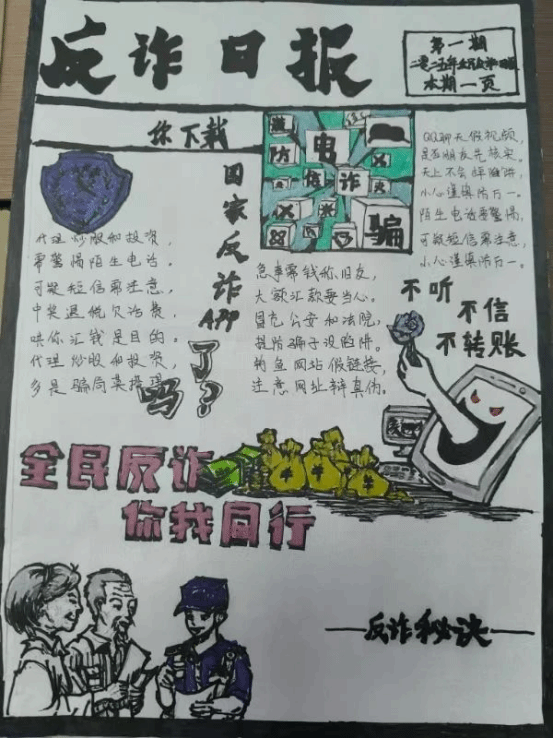 反诈日报
第一期
本期一页
你下载
国家反诈APP
了?
吗?
防
电
信
诈
骗
代理炒股和投资，
需警惕陌生电话。
可疑短信需注意，
中奖退税欠话费，
哄你汇钱是目的。
代理炒股和投资，
多是骗局莫搭理
急事需钱称旧友，
大额汇款要当心。
冒充公安和法院，
提防骗子设陷阱。
钓鱼网站假链接，
注意网址辩真伪。
QQ聊天假视频，
是否朋友先核实。
天上不会掉馅饼，
小心谨慎防万一。
陌生电话要警惕，
可疑短信需注意，
小心谨慎防万一。
不听
不信
不转账
全民反诈
你我同行
反诈秘诀